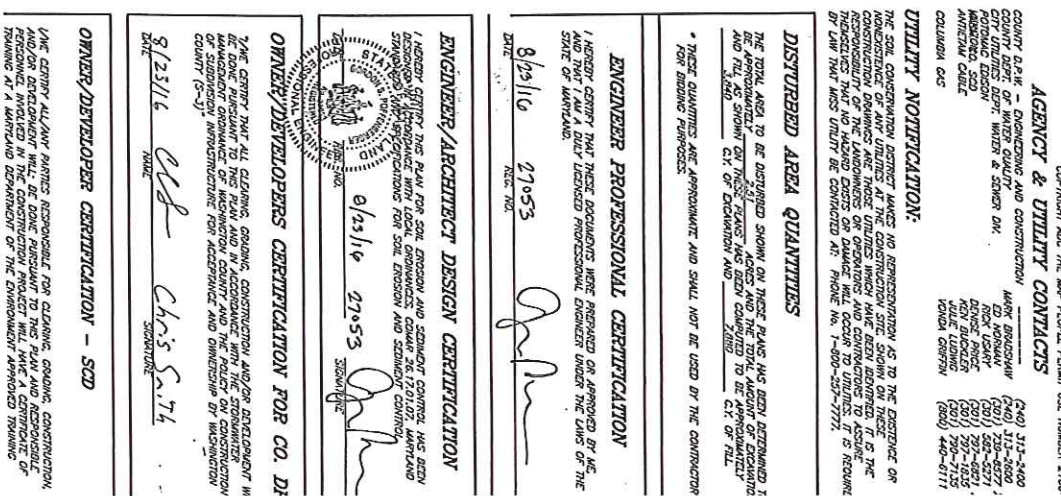 AGENCY & UTILITY CONTACTS
COUNTY D.P.W. - ENGINEERING AND CONSTRUCTION MARK BRADSHAW (240) 313-2400
COUNTY DEPT. OF WATER QUALITY ED NORMAN (240) 313-2600
CITY UTILITIES DEPT. WATER & SEWER DIV. RICK USARY
POTOMAC EDISON DENISE PRICE (301) 582-5271
WASHINGTON CO. SCD (301) 797-6821
ANTIETAM CABLE
COLUMBIA GAS VONDA GRIFFIN (800) 440-6111
UTILITY NOTIFICATION:
THE SOIL CONSERVATION DISTRICT MAKES NO REPRESENTATION AS TO THE EXISTENCE OR
NONEXISTENCE OF ANY UTILITIES AT THE CONSTRUCTION SITE. SHOWN ON THESE
CONSTRUCTION DRAWINGS ARE THOSE UTILITIES WHICH HAVE BEEN IDENTIFIED. IT IS THE
RESPONSIBILITY OF THE LANDOWNERS OR OPERATORS AND CONTRACTORS TO ASSURE
THEMSELVES THAT NO HAZARD EXISTS OR DAMAGE WILL OCCUR TO UTILITIES. IT IS REQUIRE
BY LAW THAT MISS UTILITY BE CONTACTED AT: PHONE No. 1-800-257-7777.
DISTURBED AREA QUANTITIES
THE TOTAL AREA TO BE DISTURBED SHOWN ON THESE PLANS HAS BEEN DETERMINED T
BE APPROXIMATELY 2.51 ACRES AND THE TOTAL AMOUNT OF EXCAVATIO
AND FILL AS SHOWN ON THESE PLANS HAS BEEN COMPUTED TO BE APPROXIMATELY
C.Y. OF EXCAVATION AND C.Y. OF FILL.
* THESE QUANTITIES ARE APPROXIMATE AND SHALL NOT BE USED BY THE CONTRACTOR
FOR BIDDING PURPOSES.
ENGINEER PROFESSIONAL CERTIFICATION
I HEREBY CERTIFY THAT THESE DOCUMENTS WERE PREPARED OR APPROVED BY ME,
AND THAT I AM A DULY LICENSED PROFESSIONAL ENGINEER UNDER THE LAWS OF THE
STATE OF MARYLAND.
8/23/16 27053
DATE REG. NO.
ENGINEER/ARCHITECT DESIGN CERTIFICATION
I HEREBY CERTIFY THIS PLAN FOR SOIL EROSION AND SEDIMENT CONTROL HAS BEEN
DESIGNED IN ACCORDANCE WITH LOCAL ORDINANCES, COMAR 26.17.01.07, MARYLAND
STANDARDS AND SPECIFICATIONS FOR SOIL EROSION AND SEDIMENT CONTROL.
8/23/16 27053
NO. SIGNATURE
OWNER/DEVELOPERS CERTIFICATION FOR CO. DP
I/WE CERTIFY THAT ALL CLEARING, GRADING, CONSTRUCTION AND/OR DEVELOPMENT W
BE DONE PURSUANT TO THIS PLAN AND IN ACCORDANCE WITH THE STORMWATER
MANAGEMENT ORDINANCE OF WASHINGTON COUNTY AND THE POLICY ON CONSTRUCTION
OF SUBDIVISION INFRASTRUCTURE FOR ACCEPTANCE AND OWNERSHIP BY WASHINGTON
COUNTY (S-3)"
8/23/16 Chris Smith
DATE NAME SIGNATURE
OWNER/DEVELOPER CERTIFICATION - SCD
I/WE CERTIFY ALL/ANY PARTIES RESPONSIBLE FOR CLEARING, GRADING, CONSTRUCTION,
AND/OR DEVELOPMENT WILL BE DONE PURSUANT TO THIS PLAN AND RESPONSIBLE
PERSONNEL INVOLVED IN THE CONSTRUCTION PROJECT WILL HAVE A CERTIFICATE OF
TRAINING AT A MARYLAND DEPARTMENT OF THE ENVIRONMENT APPROVED TRAINING